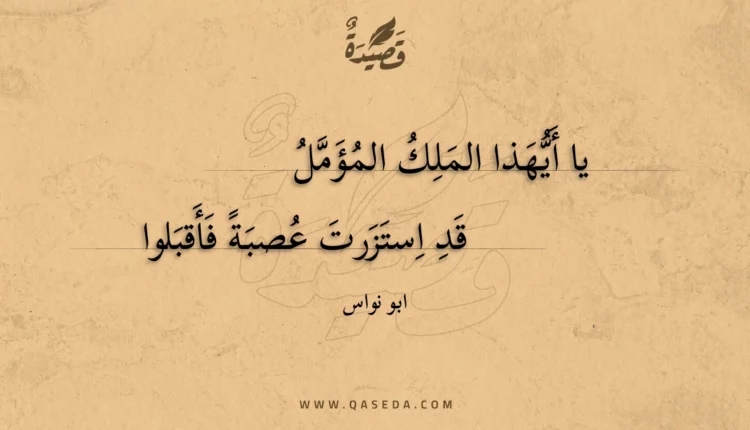 قَصِيدَةٌ
يا أَيُّهَذا المَلِكُ المُؤَمَّلُ
قَدِ اِستَزَرتَ عُصبَةً فَأَقبَلوا
ابو نواس
WWW.QASEDA.COM